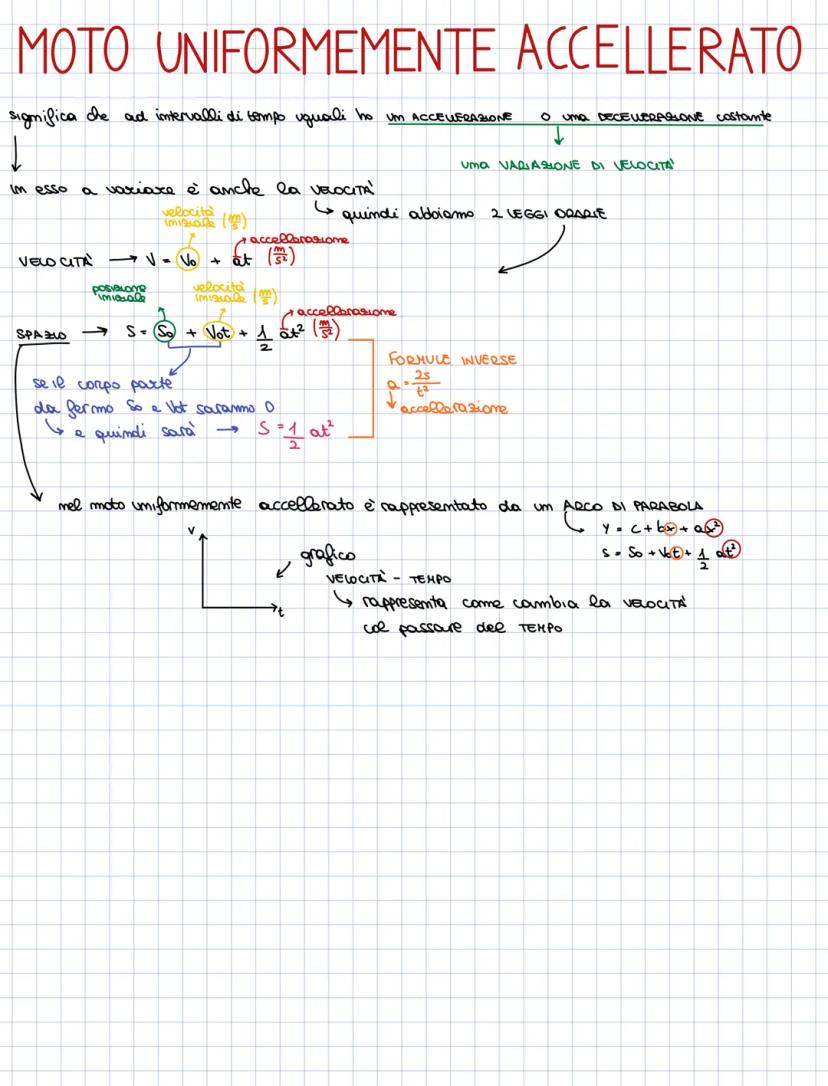 MOTO UNIFORMEMENTE ACCELLERATO
significa che ad intervalli di tempo uguali ho un ACCELLERAZIONE o una DECELLERAZIONE costante
una VARIAZIONE DI VELOCITÀ
in esso a variare è anche la VELOCITÀ
quindi abbiamo 2 LEGGI ORARIE
velocità iniziale (m/s)
accellerazione (m/s²)
VELOCITÀ → V = V₀ + at
posizione iniziale
velocità iniziale (m/s)
accellerazione (m/s²)
SPAZIO → S = S₀ + V₀t + 1/2 at²
FORMULE INVERSE
a = 2s/t²
accellerazione
se il corpo parte
da fermo S₀ e V₀t saranno 0
e quindi sarà → S = 1/2 at²
nel moto uniformemente accellerato è rappresentato da un ARCO DI PARABOLA
y = c + bx + ax²
s = S₀ + V₀t + 1/2 at²
V
t
grafico
VELOCITÀ - TEMPO
rappresenta come cambia la VELOCITÀ
col passare del TEMPO